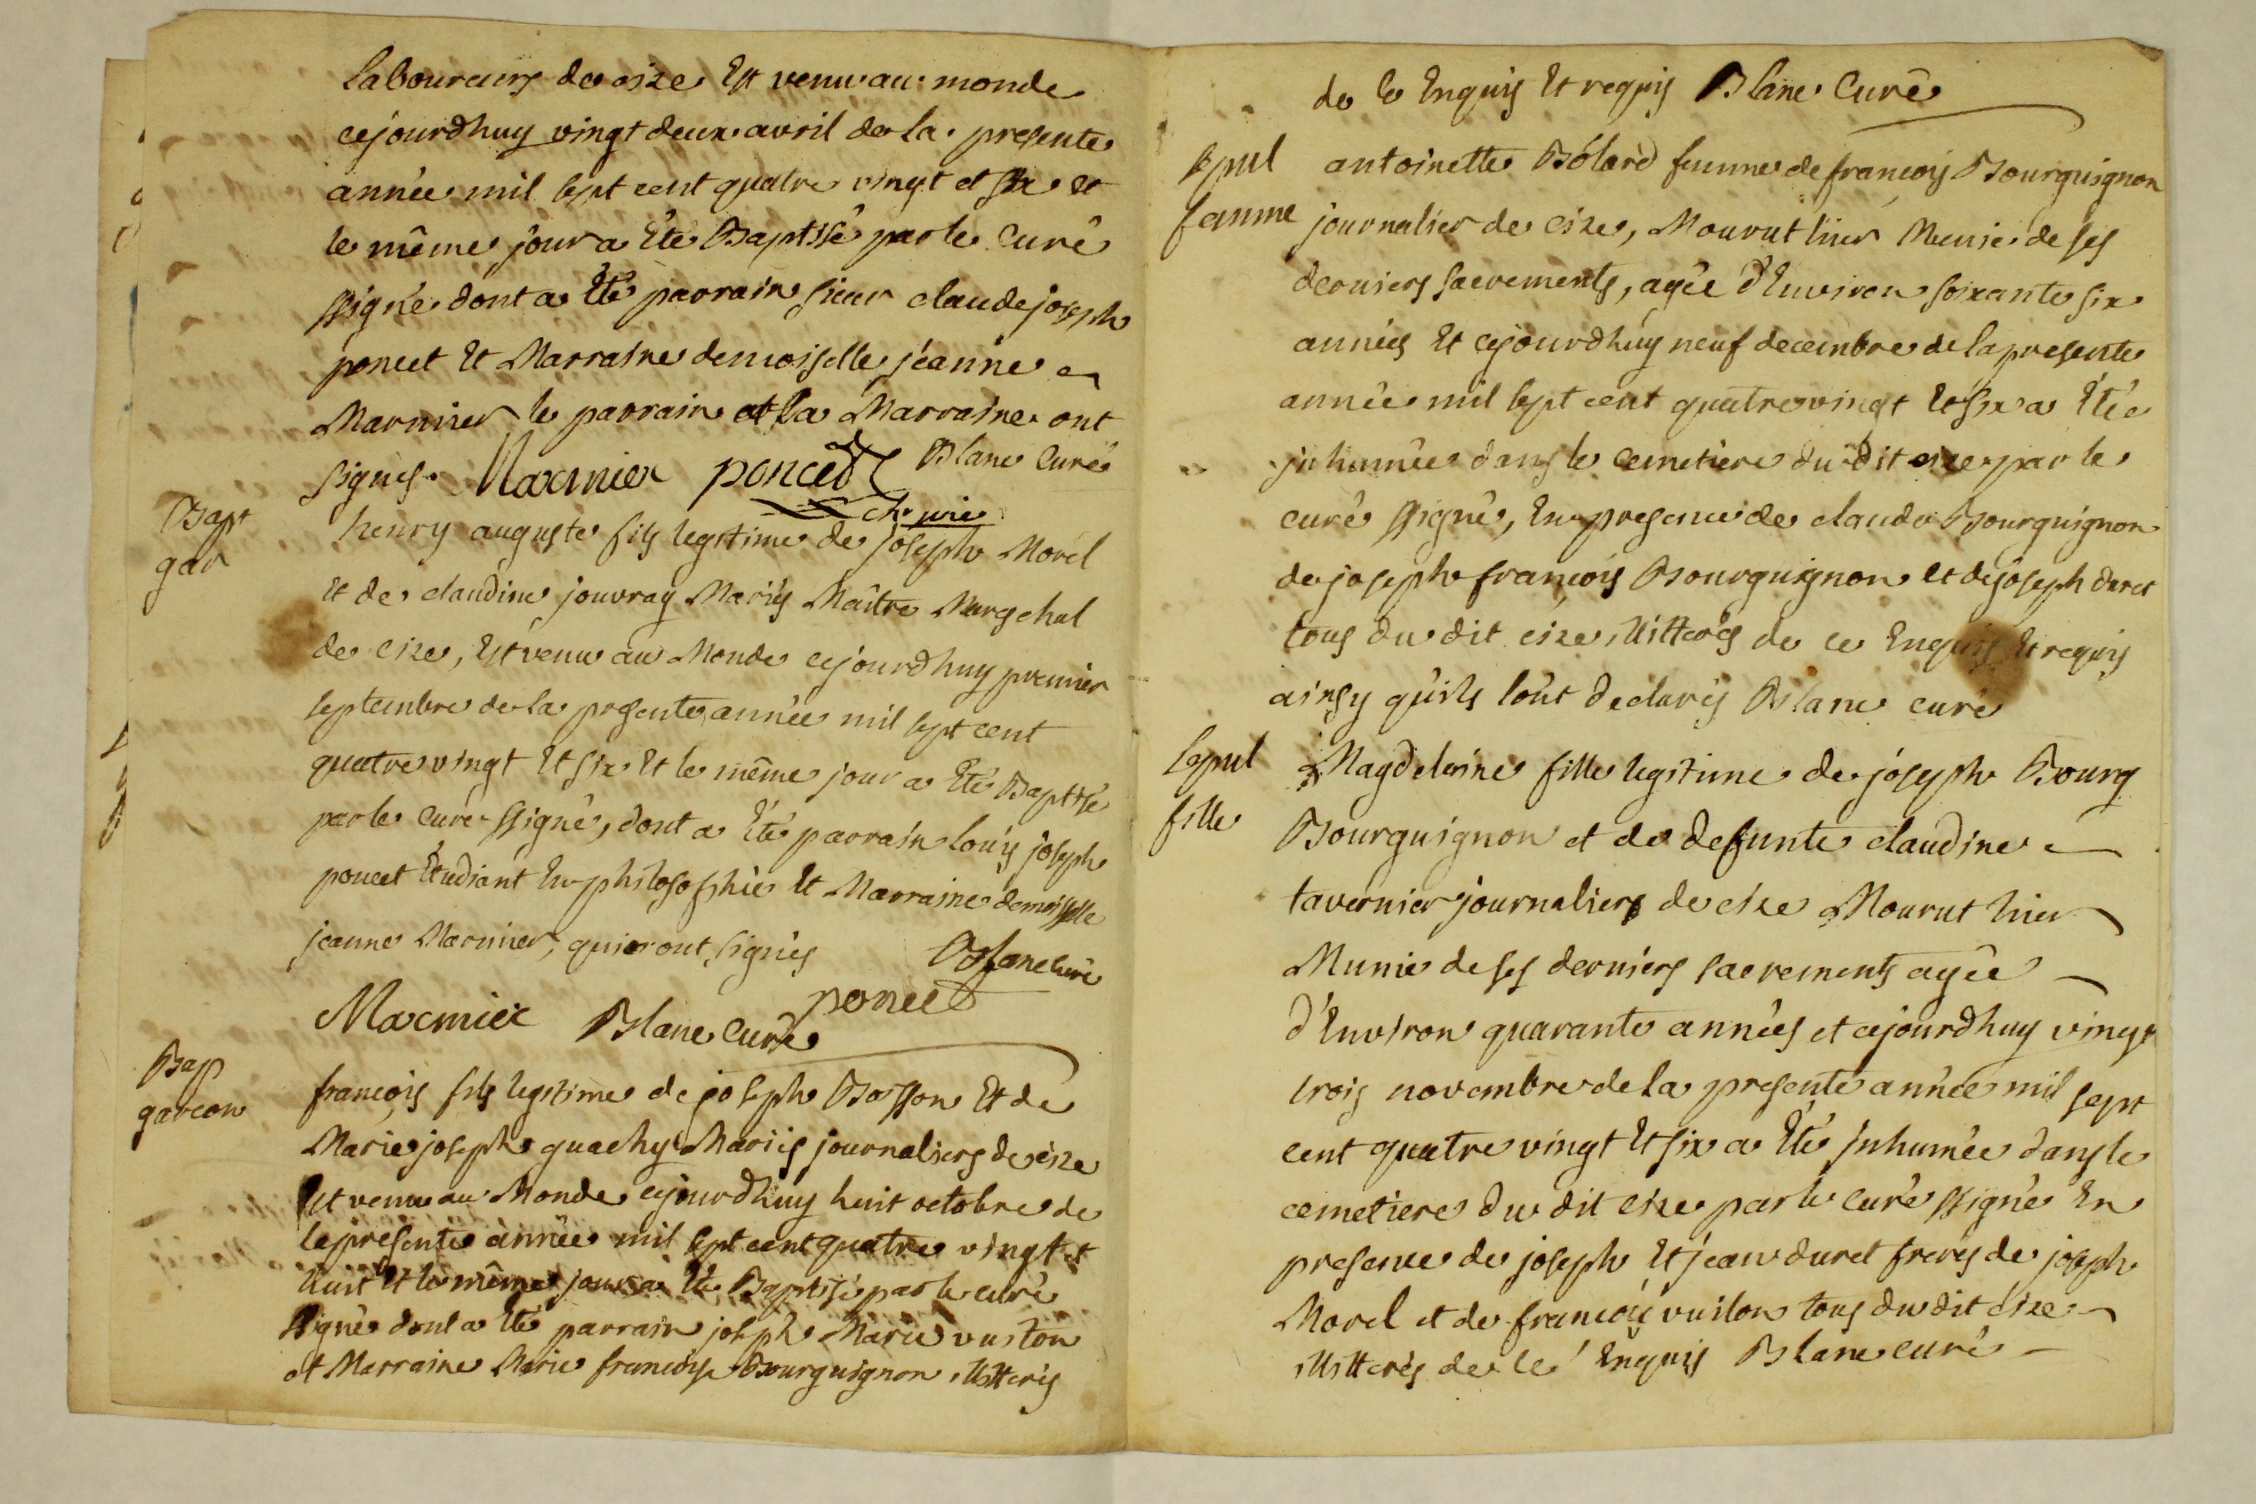 laboureurs de cize Est venu au monde
cejourdhuy vingt deux avril de la presente
année mil sept cent quatre vingt et six et
le même jour a Eté Baptisé par le Curé
ssigné dont a Eté parrain sieur claude joseph
poncet Et Marraine demoiselle jeanne
Marmier le parrain et la Marraine ont
signés. Marmier poncet Blanc Curé
Bapt
gar
henry auguste fils legitime de joseph Morel
Et de claudine jouvray Mariés Maître Marechal
de Cize, Est venu au Monde cejourdhuy premier
septembre de la presente année mil sept cent
quatre vingt Et six Et le même jour a Eté Baptisé
par le Curé ssigné, dont a Eté parrain louis joseph
poncet Etudiant En philosophie Et Marraine demoiselle
jeanne Marmier, qui ont signés Blanc curé
Marmier Blanc Curé poncet
Bap
garcon
françois fils legitime de joseph Bosson Et de
Marie joseph guachy Mariés journaliers de cize
Est venu au Monde cejourdhuy huit octobre de
la presente année mil sept cent quatre vingt et
huit Et le même jour a Eté Baptisé par le curé
ssigné dont a Eté parrain joseph Marie vuilon
et Marraine Marie françoise Bourguignon illitterés
de ce Enquis Et requis Blanc Curé
sepul
femme
antoinette Bólard femme de françois Bourguignon
journalier de Cize, Mourut hier Munie de ses
derniers sacrements, agée d'Environ soixante six
années Et cejourdhuy neuf decembre de la presente
année mil sept cent quatre vingt Et six a Eté
inhumée dans le cemetiere du dit cize par le
curé ssigné, En presence de claude Bourguignon
de joseph françois Bourguignon et de joseph duret
tous du dit cize, illitterés de ce Enquis Et requis
ainsy qu'ils l'ont declarés Blanc curé
sepul
fille
Magdeleine fille legitime de joseph Bourg
Bourguignon et de defunte claudine
tavernier journaliers de cize Mourut hier
Munie de ses derniers sacrements agée
d'Environ quarante années et cejourdhuy vingt
trois novembre de la presente année mil sept
cent quatre vingt Et six a Eté inhumée dans le
cemetiere du dit Cize par le curé ssigné En
presence de joseph Et jean duret freres de joseph
Morel et de françois vuilon tous du dit Cize
illitterés de ce Enquis Blanc curé